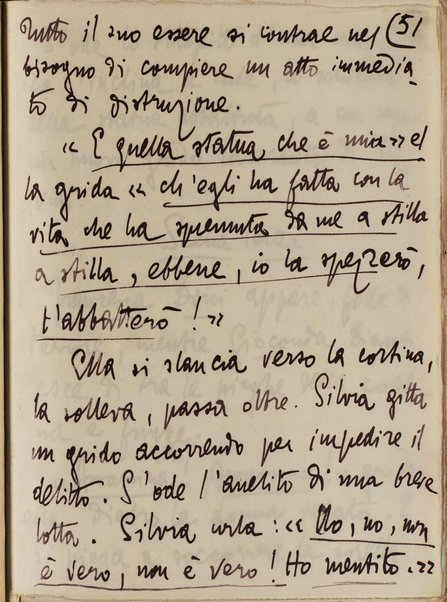 Tutto il suo essere si contrae nel (51
bisogno di compiere un atto immedia-
to di distruzione.
« E quella statua, che è mia » el
la grida « ch'egli ha fatta con la
vita che ha spremuta da me a stilla
a stilla, ebbene, io la spezzerò,
l'abbatterò! »
Ella si slancia verso la cortina,
la solleva, passa oltre. Silvia gitta
un grido accorrendo per impedire il
delitto. S'ode l'anelito di una breve
lotta. Silvia urla: « No, no, non
è vero, non è vero! Ho mentito. »